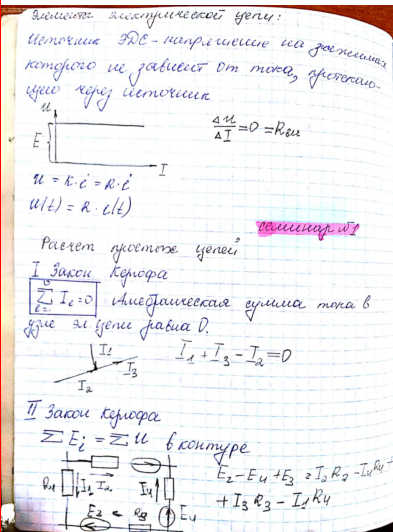 Элементы электрической цепи:
Источник ЭДС - напряжение на зажимах
которого не зависит от тока, протекаю-
щего через источник
u
E
I
Δu/ΔI = 0 = Rвн
u = R·i = R·i
u(t) = R·i(t)
семинар №1
Расчет простых цепей
I Закон Кергофа
Σ Ii = 0 Алгебраическая сумма тока в
узле эл цепи равна 0.
I1
I3
I2
I1 + I3 - I2 = 0
II Закон Кергофа
Σ Ei = Σ U в контуре
R1 I1 I2 I4
E2 R3 E4
E2 - E4 + E3 = I2 R2 - I4 R4
+ I3 R3 - I1 R4